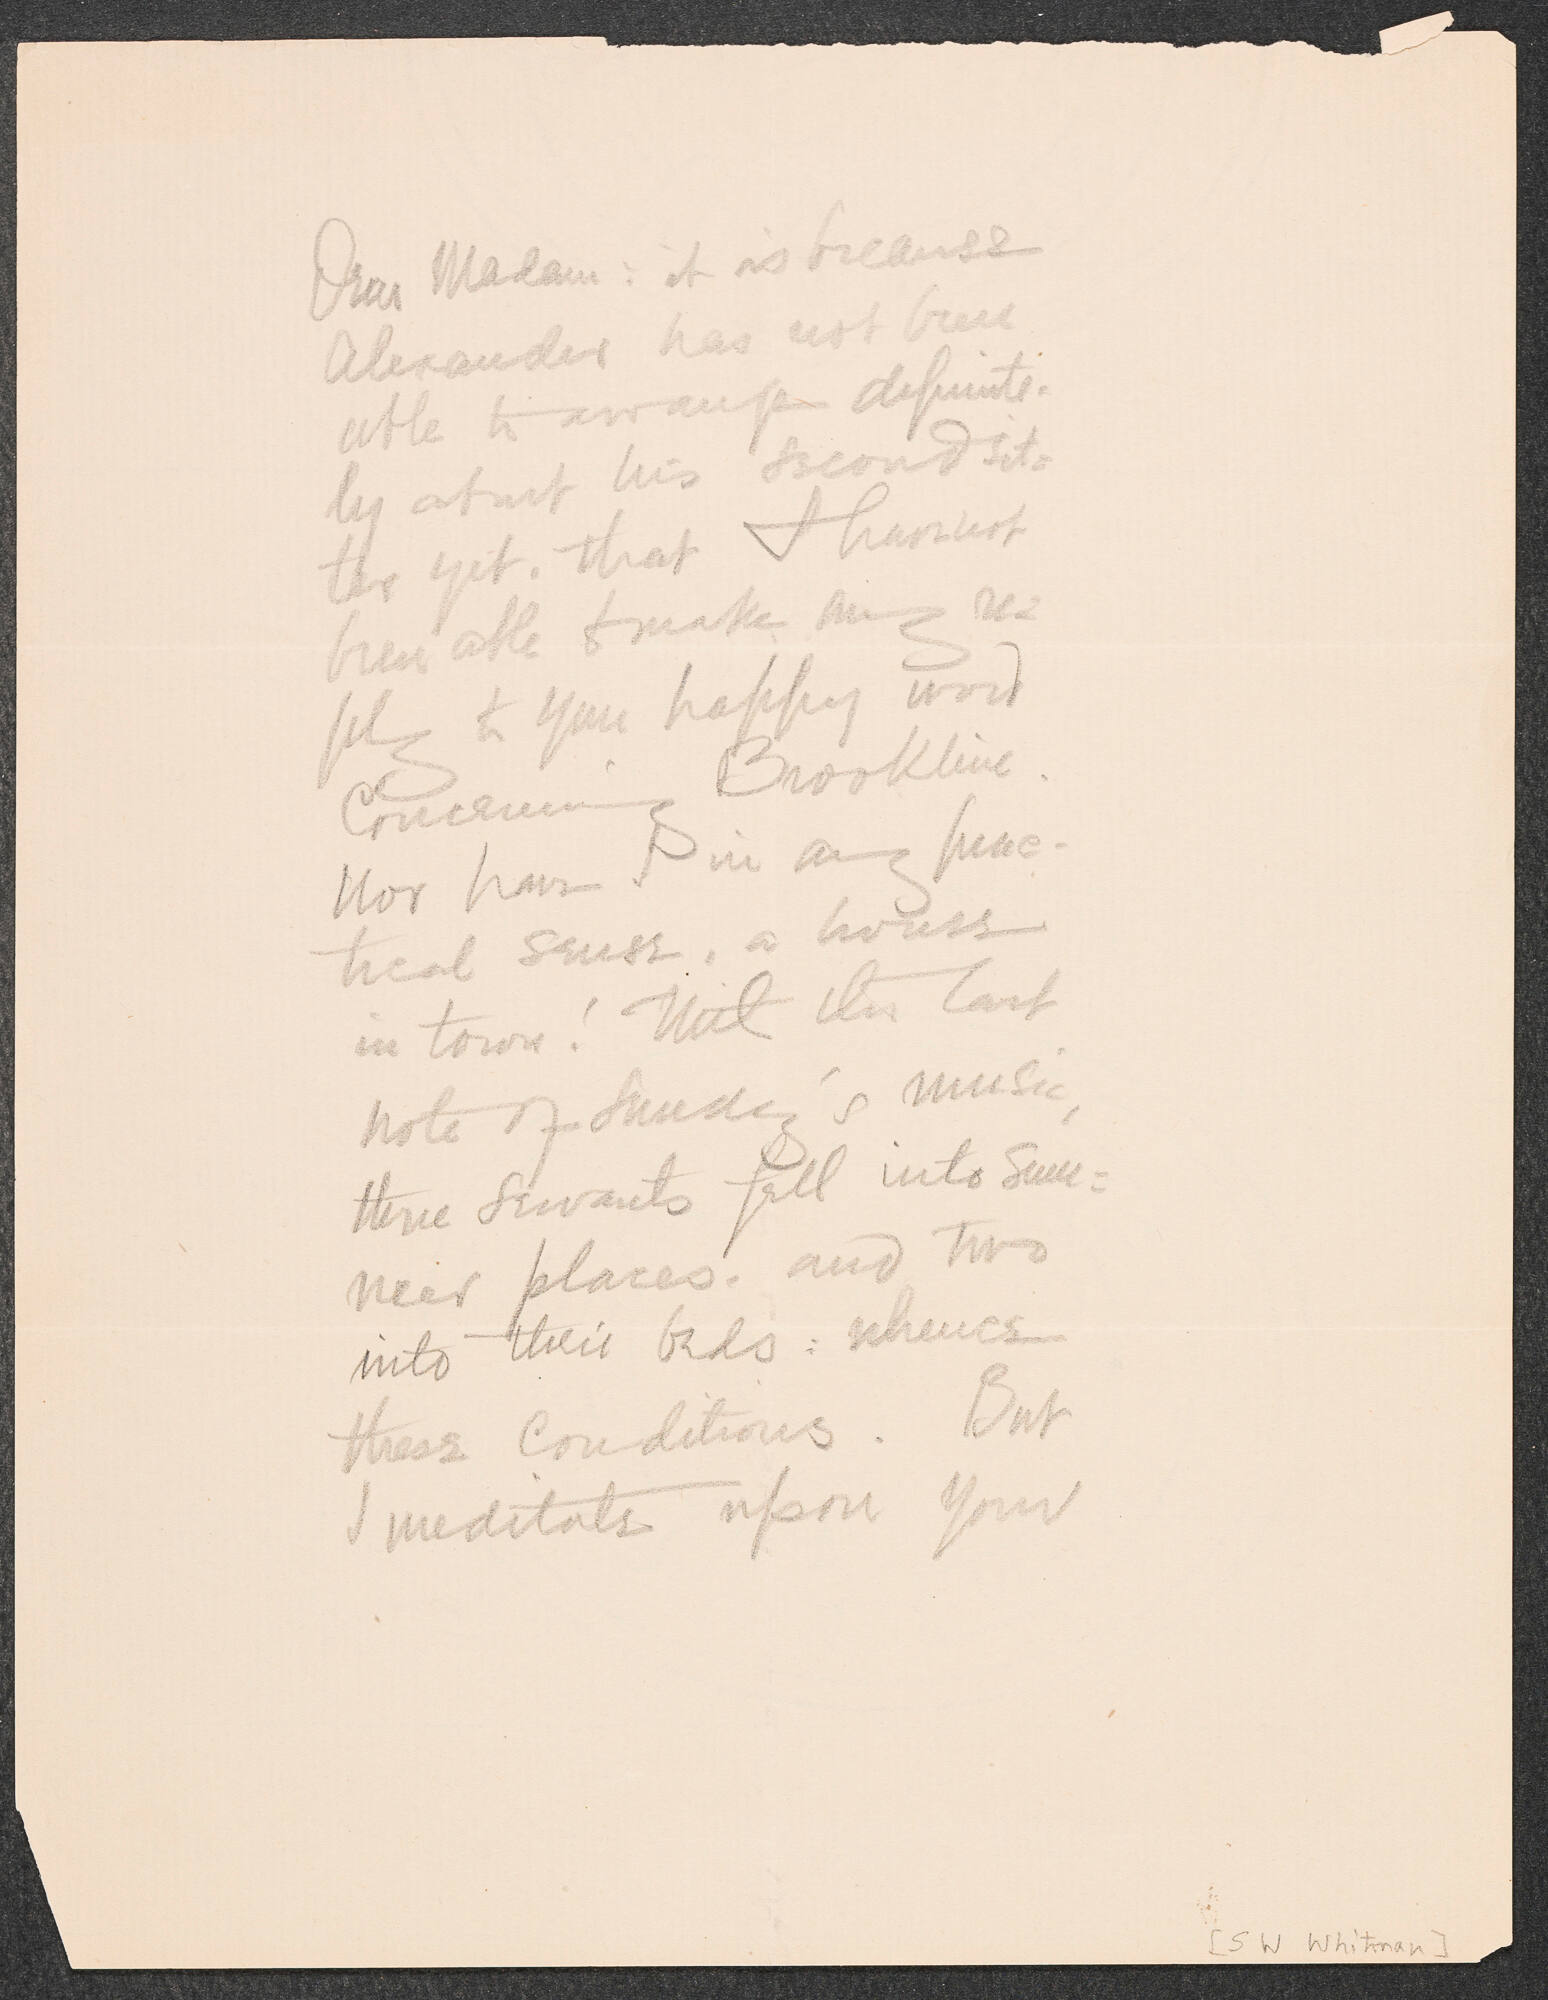 Dear Madam: it is because
Alexander has not been
able to arrange definite-
ly about his second sit=
ter yet, that I have not
been able to make any re=
ply to your happy word
concerning Brookline.
Nor have I in any prac-
tical sense, a house
in town! With the last
note of Sunday's music,
three servants fell into sum=
mer places, and two
into their beds: whence
these conditions. But
I meditate upon your
[S W Whitman]